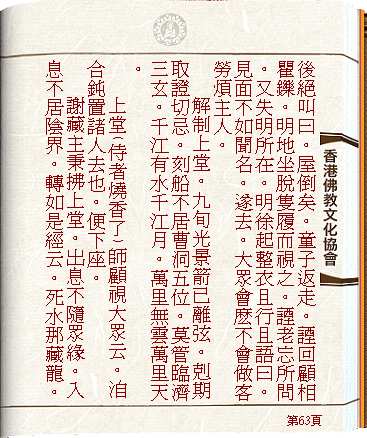 後絕叫曰。屋倒矣。童子返走。諲回顧相
矍鑠。明地坐脫隻履而視之。諲老忘所問
。又失明所在。明徐起整衣且行且語曰。
見面不如聞名。遂去。大眾會麼不會做客
勞煩主人。
解制上堂。九旬光景箭已離弦。剋期
取證切忌。刻船不居曹洞五位。莫管臨濟
三玄。千江有水千江月。萬里無雲萬里天
。
上堂(侍者燒香了)師顧視大眾云。洎
合鈍置諸人去也。便下座。
謝藏主秉拂上堂。出息不隨眾緣。入
息不居陰界。轉如是經云。死水那藏龍。
香港佛教文化協會
第63頁